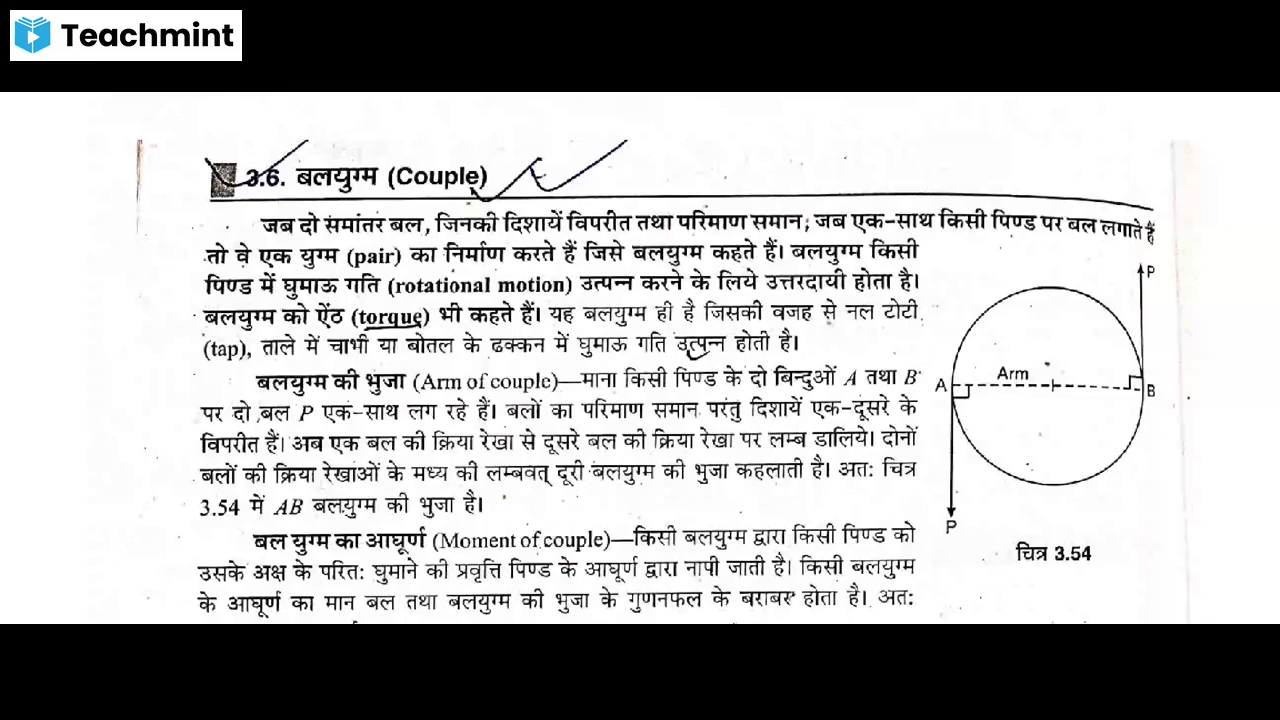 Teachmint
3.6. बलयुग्म (Couple)
जब दो समांतर बल, जिनकी दिशायें विपरीत तथा परिमाण समान; जब एक-साथ किसी पिण्ड पर बल लगाते हैं
तो वे एक युग्म (pair) का निर्माण करते हैं जिसे बलयुग्म कहते हैं। बलयुग्म किसी
पिण्ड में घुमाऊ गति (rotational motion) उत्पन्न करने के लिये उत्तरदायी होता है।
बलयुग्म को ऐंठ (torque) भी कहते हैं। यह बलयुग्म ही है जिसकी वजह से नल टोटी
(tap), ताले में चाभी या बोतल के ढक्कन में घुमाऊ गति उत्पन्न होती है।
बलयुग्म की भुजा (Arm of couple)—माना किसी पिण्ड के दो बिन्दुओं A तथा B
पर दो बल P एक-साथ लग रहे हैं। बलों का परिमाण समान परंतु दिशायें एक-दूसरे के
विपरीत हैं। अब एक बल की क्रिया रेखा से दूसरे बल की क्रिया रेखा पर लम्ब डालिये। दोनों
बलों की क्रिया रेखाओं के मध्य की लम्बवत् दूरी बलयुग्म की भुजा कहलाती है। अतः चित्र
3.54 में AB बलयुग्म की भुजा है।
बल युग्म का आघूर्ण (Moment of couple)—किसी बलयुग्म द्वारा किसी पिण्ड को
उसके अक्ष के परितः घुमाने की प्रवृत्ति पिण्ड के आघूर्ण द्वारा नापी जाती है। किसी बलयुग्म
के आघूर्ण का मान बल तथा बलयुग्म की भुजा के गुणनफल के बराबर होता है। अतः
P
A
Arm
B
P
चित्र 3.54